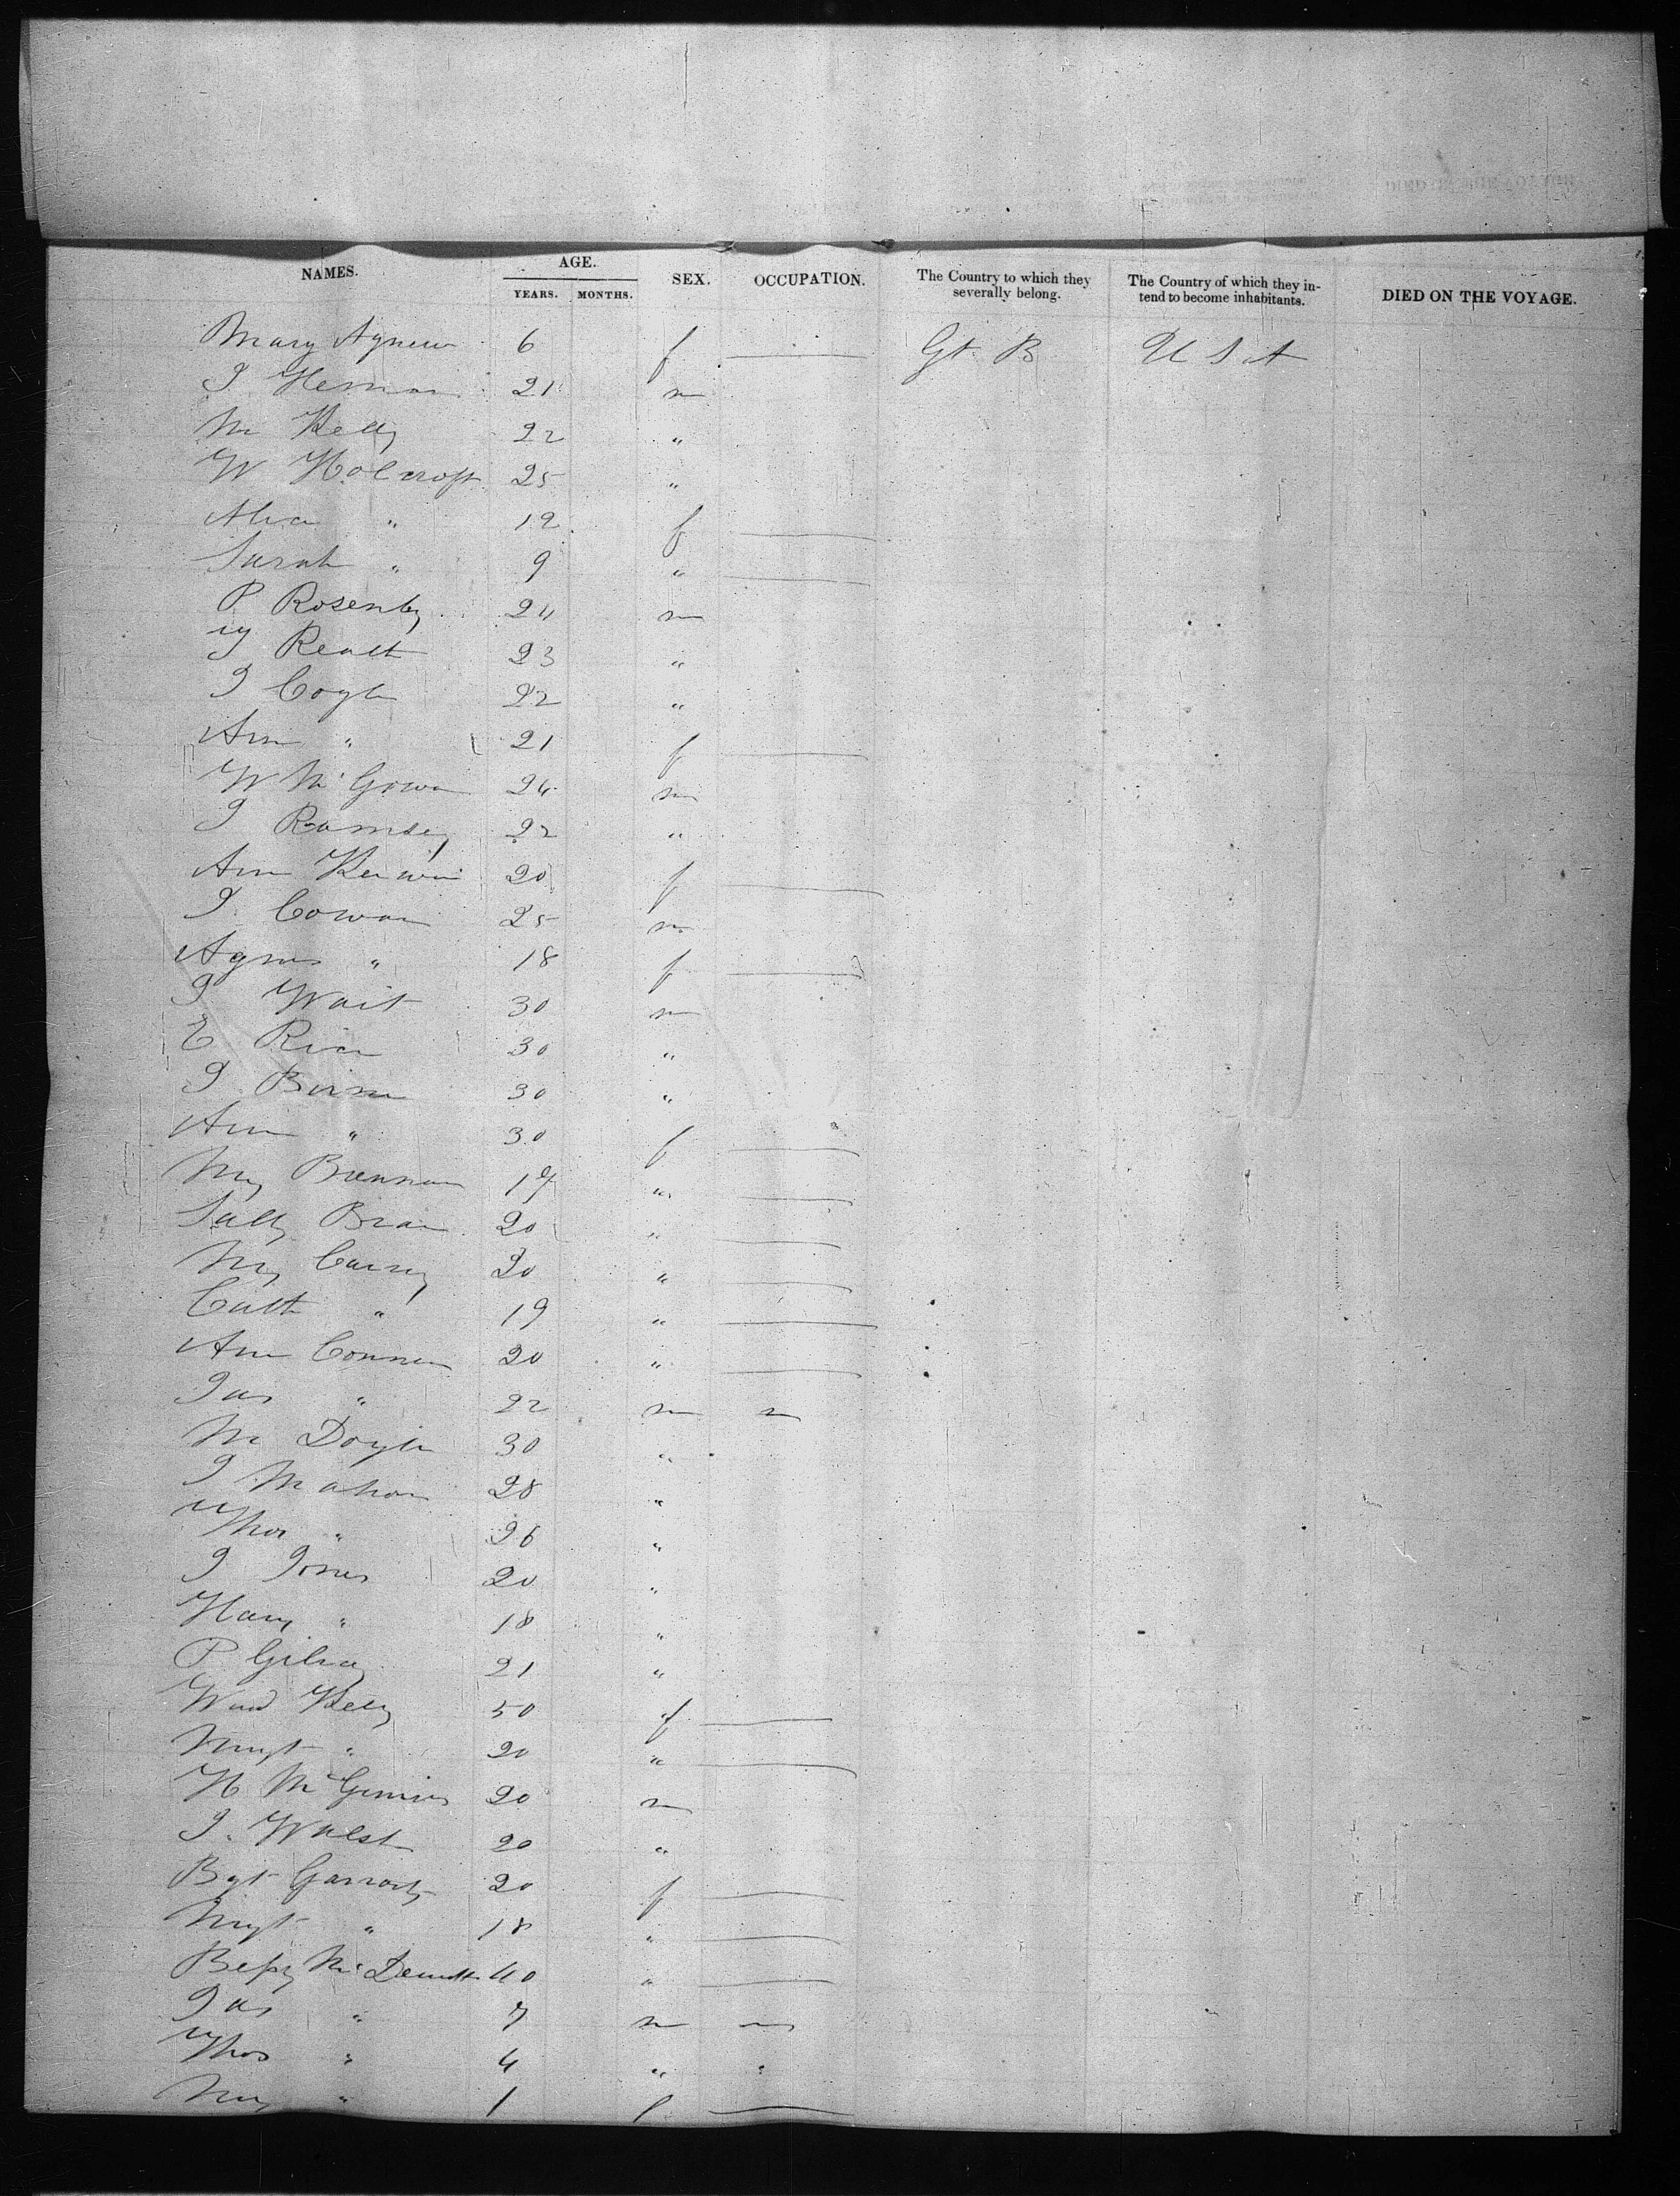 NAMES. AGE. SEX. OCCUPATION. The Country to which they severally belong. The Country of which they intend to become inhabitants. DIED ON THE VOYAGE.
YEARS. MONTHS.
Mary Agnew 6 f — Gt. B U S A
21 m
M Kelly 22 "
W Holcroft 25 "
Alice " 19 f —
Sarah " 9 " —
P Rosenby 24 m
23 "
J Coyle 22 "
Ann " 21 f —
W McGowan 24 m
J Ramsey 22 "
Ann Kerwin 20 f —
J Cowan 25 m
Agnes " 18 f —
J Wait 30 m
E Rice 30 "
J Birne 30 "
Ann " 30 f —
My Brennan 17 " —
Sally 20 " —
My 20 " —
Cath " 19 " —
Ann Connen 20 " —
Jas " 22 m
M Doyle 30 "
J Mahon 28 "
Thos " 26 "
J Jones 20 "
Harry " 18 "
P Gilroy 21 "
Kelly 50 f —
Mgt " 20 " —
H McGinnis 20 m
J. Walsh 20 "
Bgt Garraty 20 f —
Mgt " 18 " —
Betsy McDermott 40 " —
Jas " 7 m —
Thos " 4 " "
My " 1 f —